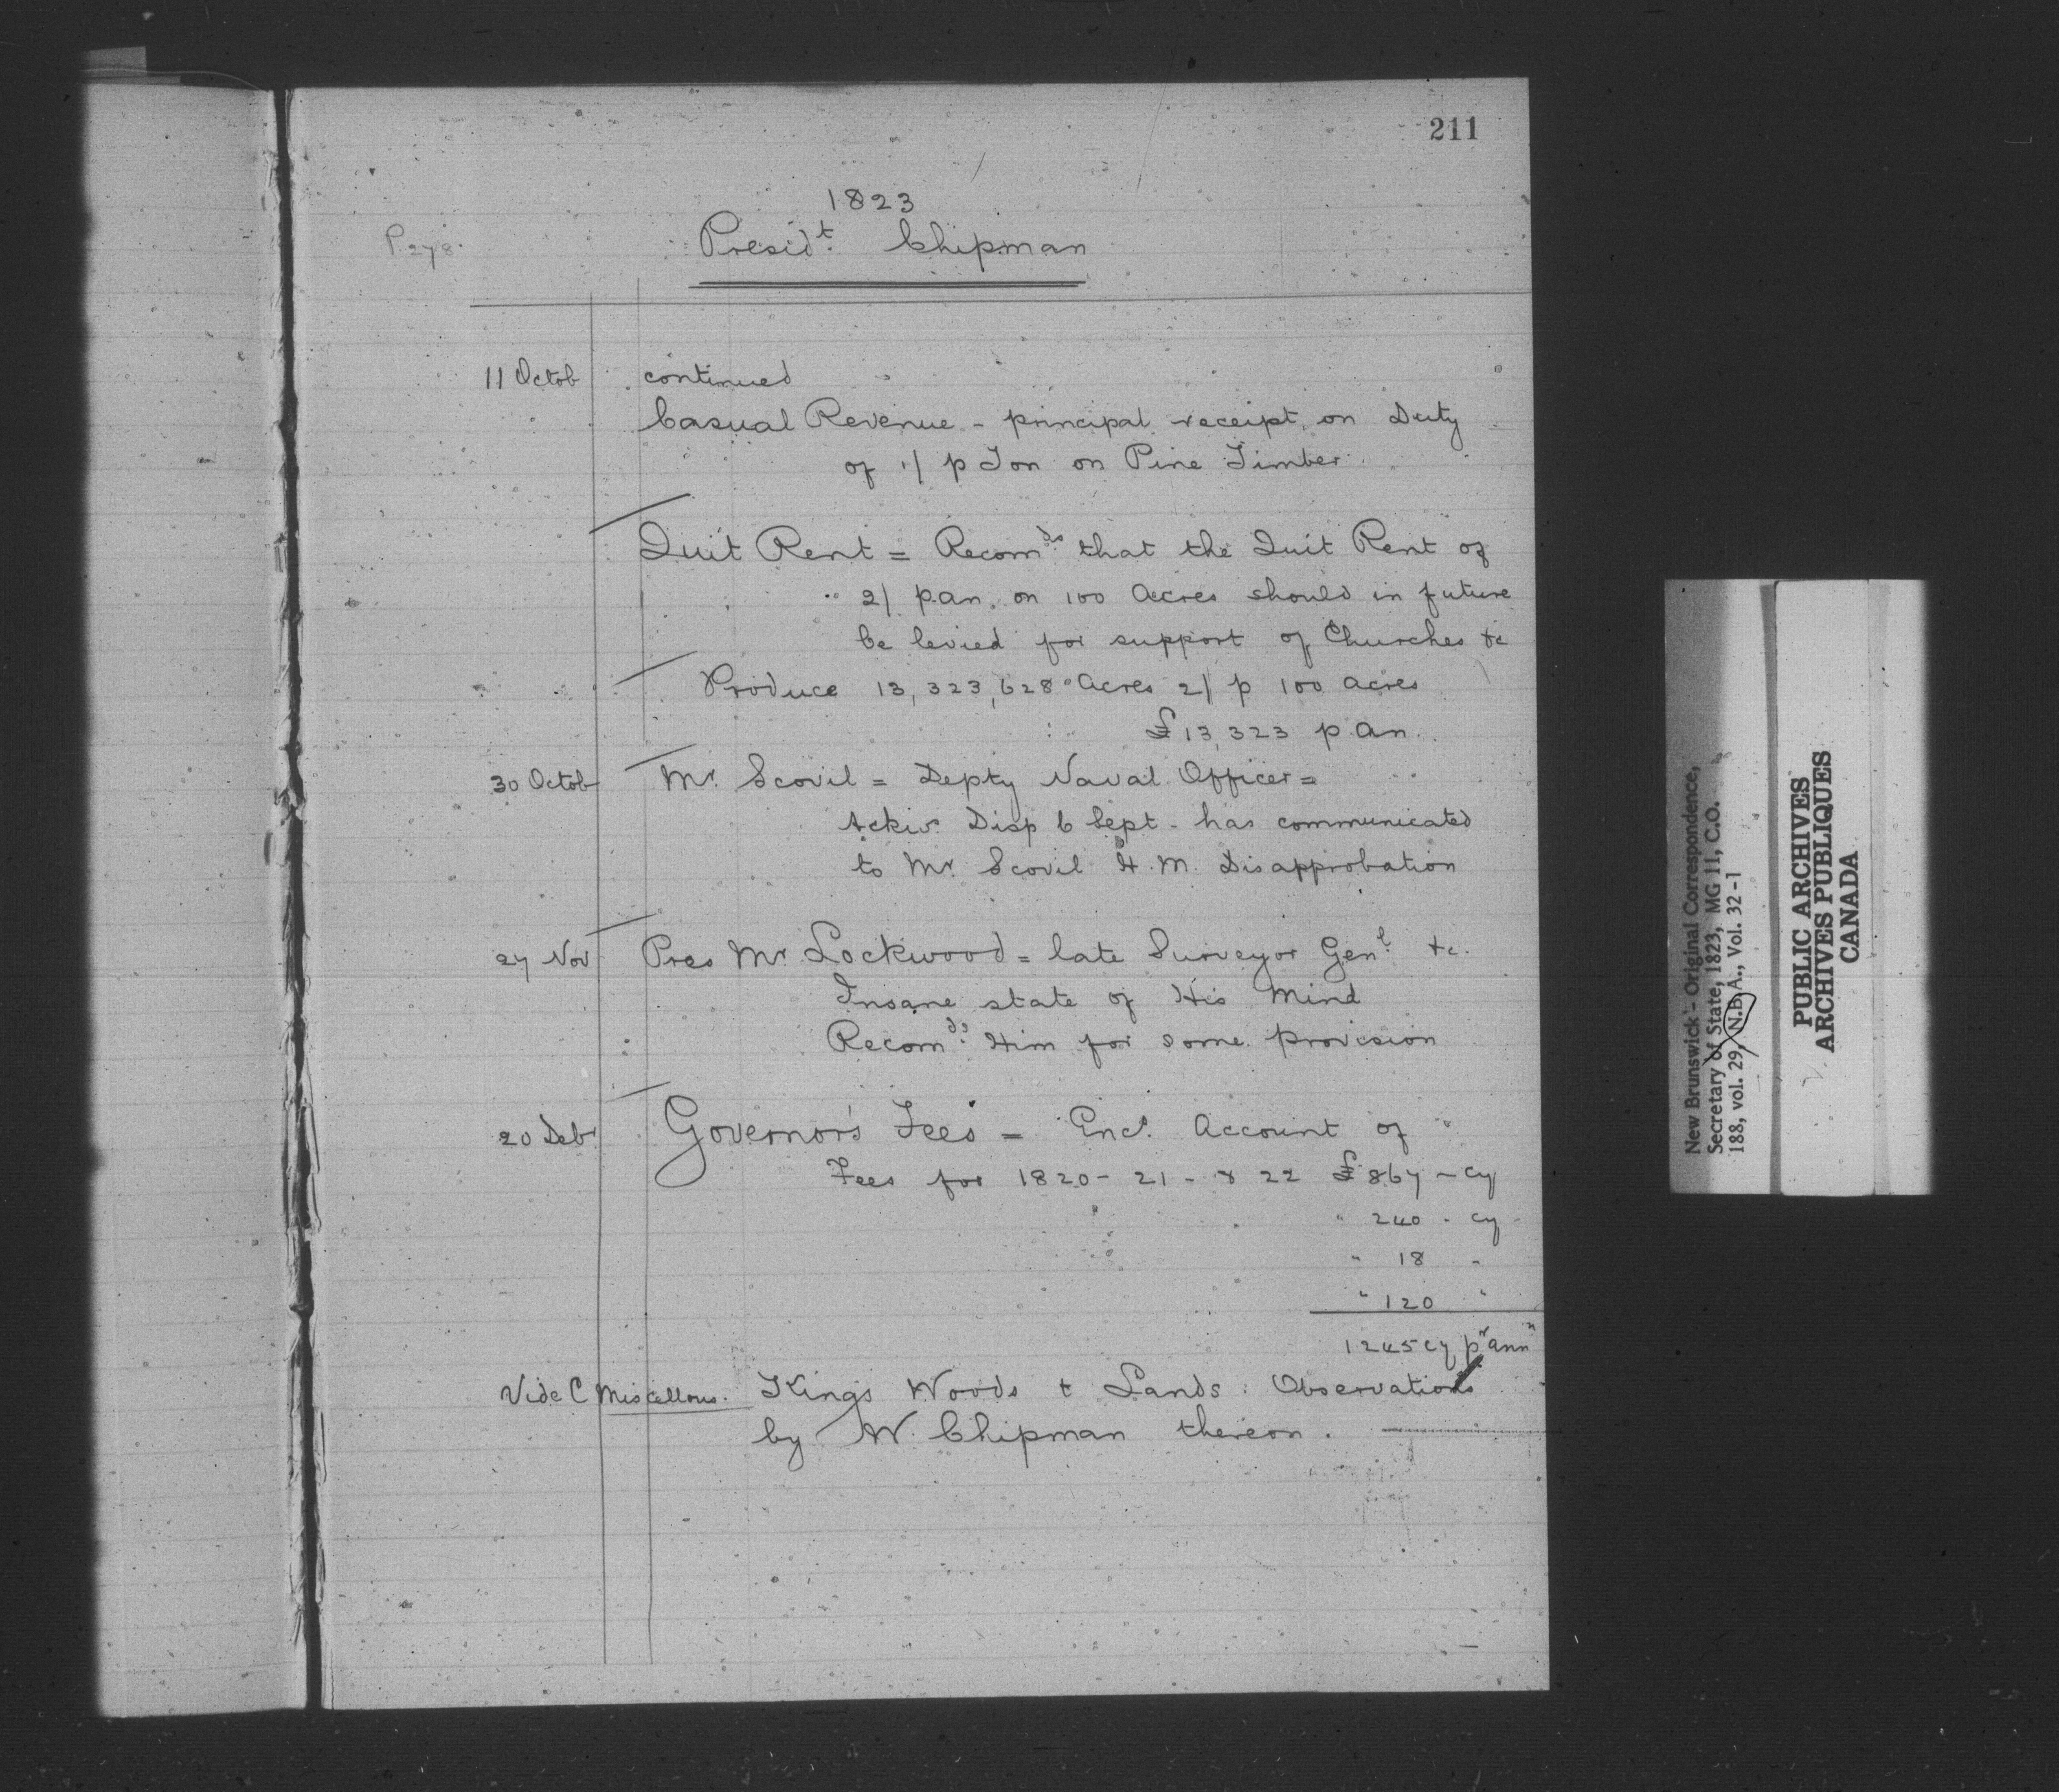 211
1823
P. 278.
Presidt. Chipman
11 Octob continued
Casual Revenue - principal receipt on Duty
of 1/ p Ton on Pine Timber
Quit Rent = Recomds that the Quit Rent of
2/ p an. on 100 Acres should in future
be levied for support of Churches &c
Produce 13,323,628 Acres 2/ p 100 acres
£13,323 p. an.
30 Octob Mr. Scovil = Depty Naval Officer =
Disp 6 Sept - has communicated
to Mr. Scovil H. M. Disapprobation
27 Nov Pres Mr. Lockwood = late Surveyor Genl. &c.
Insane state of His Mind
Recomds. Him for some provision
20 Debr Governor's Fees = Encs. Account of
Fees for 1820 - 21 - & 22 £867 - cy
" 240 - cy
" 18 "
" 120 "
1245 cy pr annm
Vide C Miscellous. Kings Woods & Lands : Observations
by W. Chipman thereon.
New Brunswick - Original Correspondence,
Secretary of State, 1823, MG 11, C.O.
188, vol. 29, N.B. A., Vol. 32-1
PUBLIC ARCHIVES
ARCHIVES PUBLIQUES
CANADA